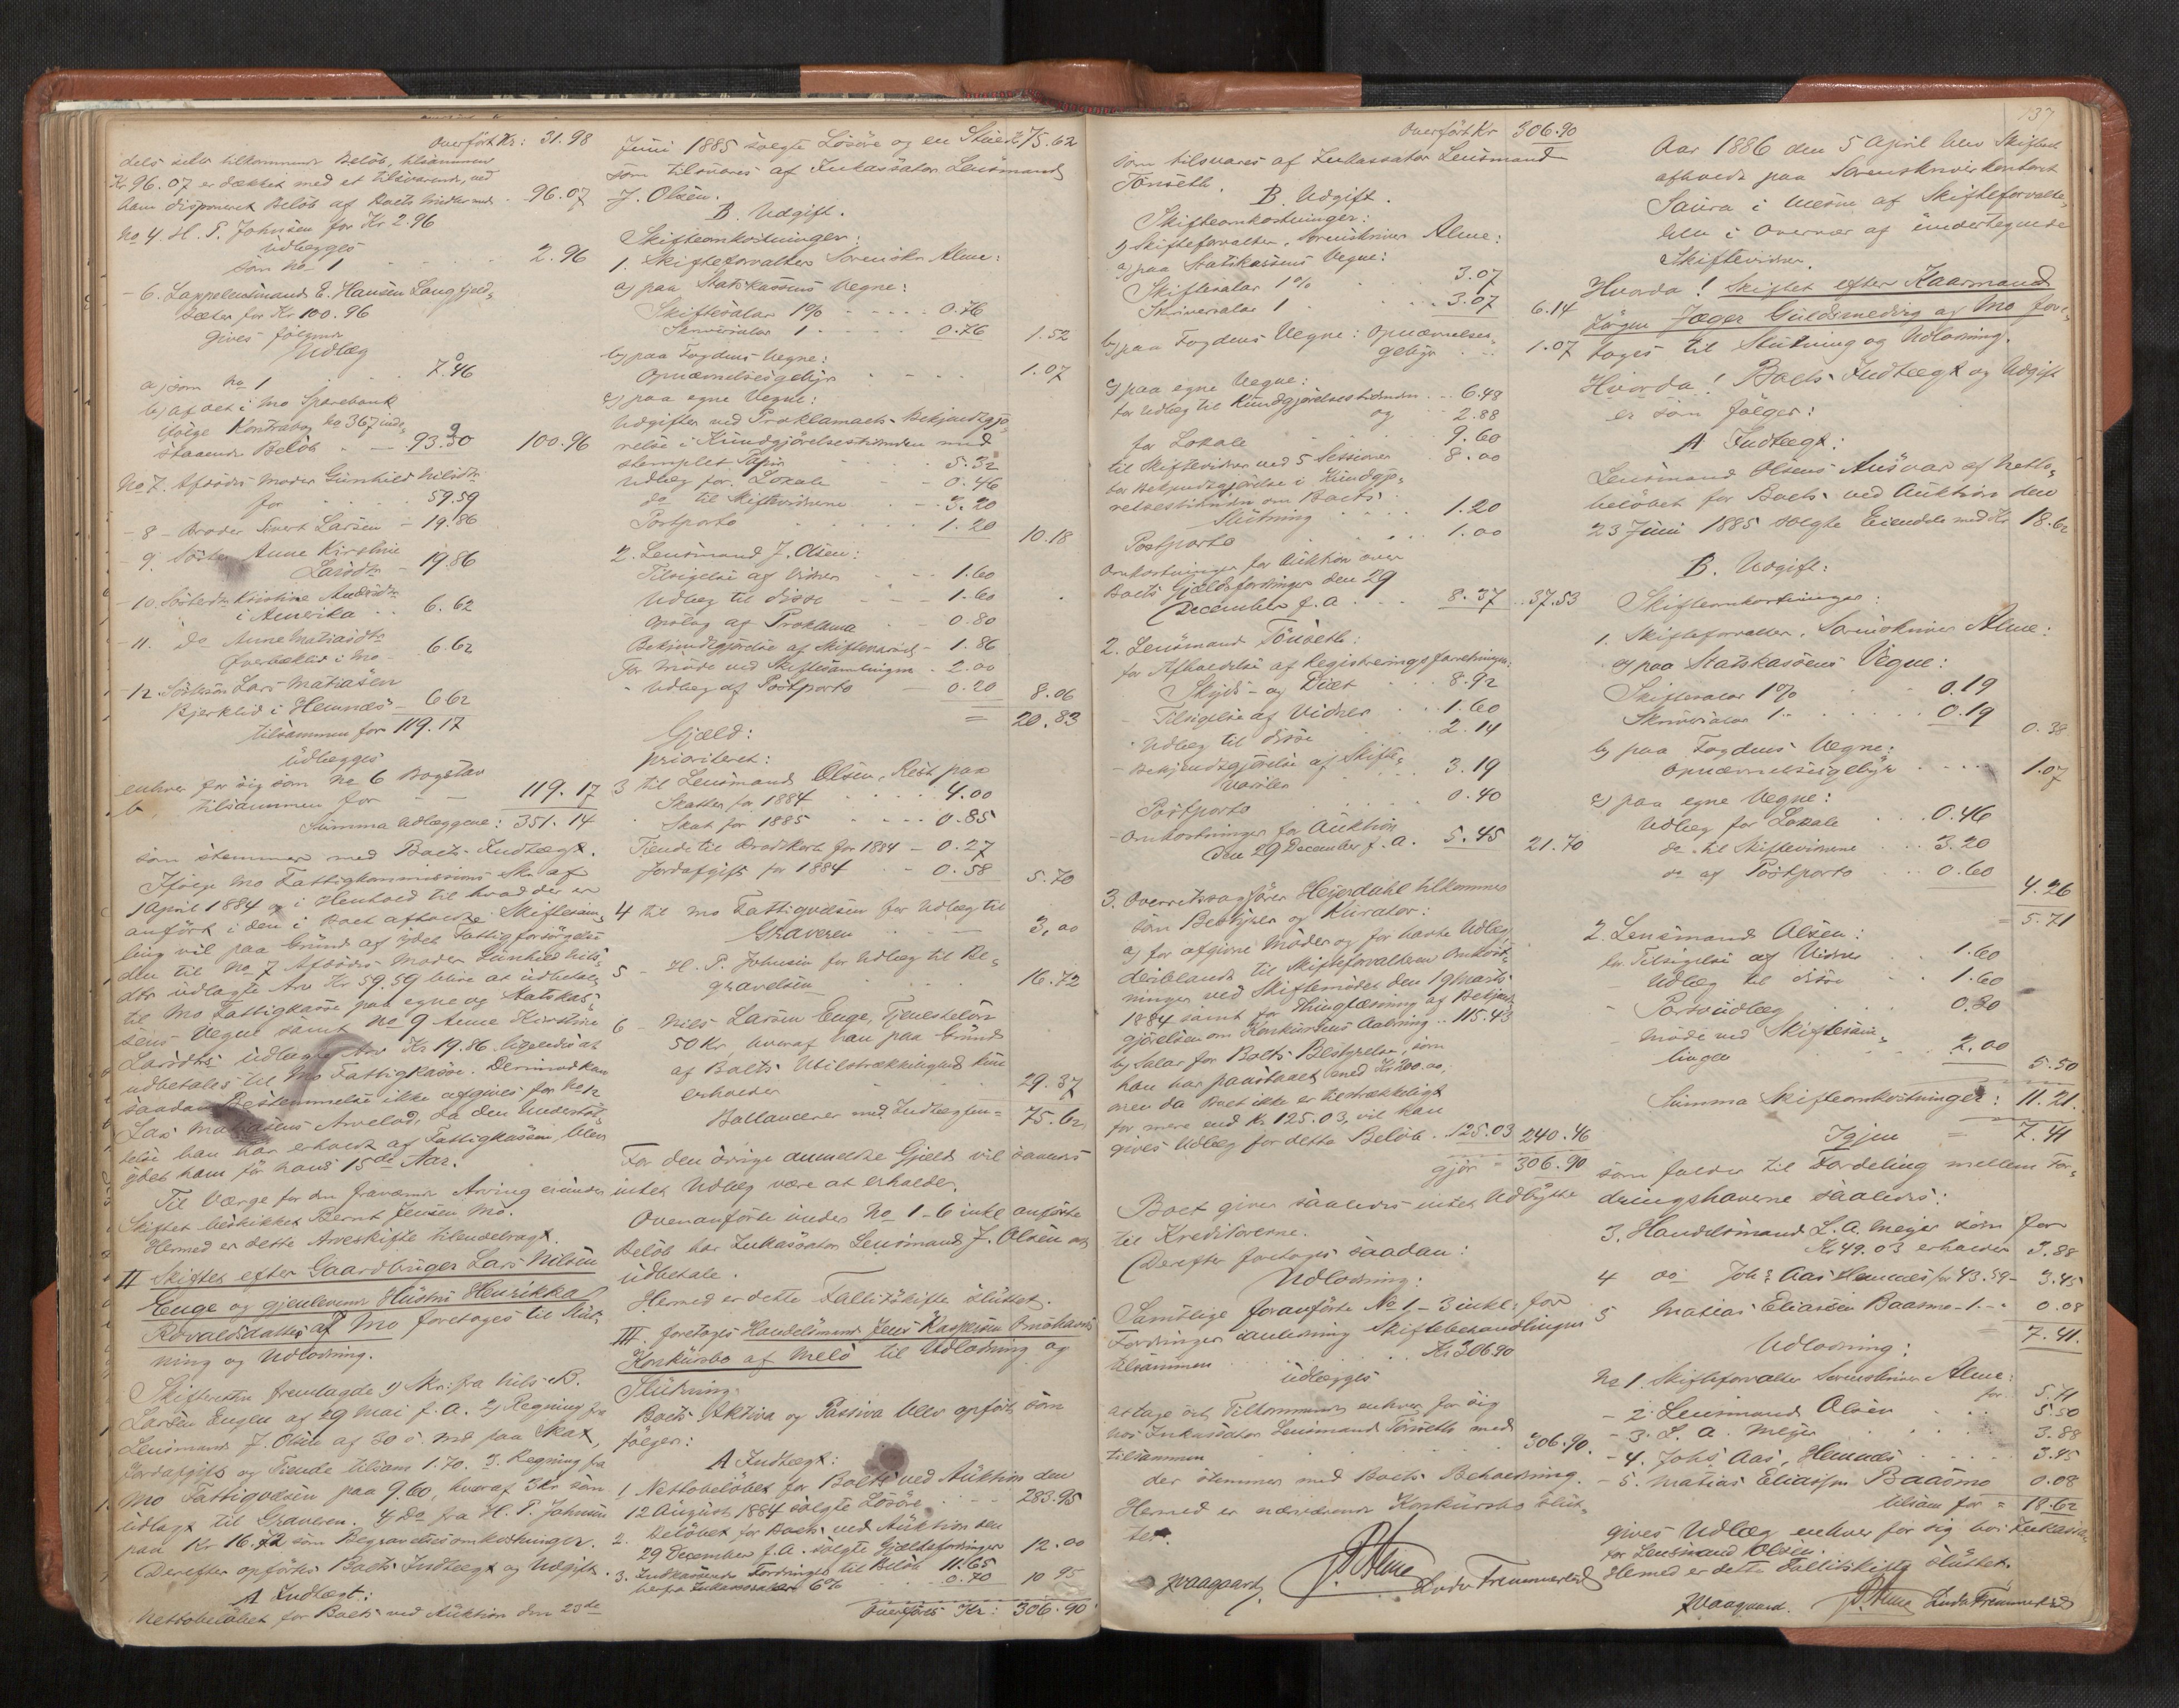 Overført Kr: 31.98
dels selv tilkommende Beløb, tilsammen
Kr 96.07 er dækket med et tilsvarende, ved
ham disponeret Beløb af Boets Midler med . 96.07
No 4. H. P. Johnsen for Kr 2.96
udlægges
som No 1 2.96
- 6. Lappelensmand E. Hansen Langfjeld,
for Kr 100.96
gives følgende
Udlæg
a) som No 1 7.46
b) af det i Mo Sparebank
ifølge Kontrabog No 367 inde,
staaende Beløb - 93.50 100.96
No 7. Afdødes Moder Gunhild Nilsdtr
for 59.59
- 8 - Broder Sivert Larsen - 19.86
- 9. Søster Anne Kirstine
Larsdtr - 19.86
- 10. Søsterdtr Kristine Andersdtr
i Amerika .. 6.62
- 11. do Anne Matiasdtr
Øverbæklid i Mo - 6.62
- 12. Søstersøn Lars Matiasen
Bjerklid i Hemnæs - 6.62
tilsammen for 119.17
udlægges
enhver for sig som No 6 Bogstav
b, tilsammen for - - 119.17
Summa Udlæggene: 351.14
som stemmer med Boets Indtægt.
Ifølge Mo Fattigkommissions Skr. af
1 April 1884 og i Henhold til hvad der er
anført i den i Boet afholdte Skiftesam,
ling vil paa Grund af ydet Fattigforsørgelse
den til No 7 Afdødes Moder Gunhild Nils,
dtr udlagte Arv Kr 59.59 blive at udbetale
til Mo Fattigkasse paa egne og Statskas,
sens Vegne samt No 9 Anne Kirstine
Larsdtrs udlagte Arv Kr 19.86 ligeledes at
udbetales til Mo Fattigkasse. Derimod kan
saadan Bestemmelse ikke afgives for No 12
Lars Matiasens Arvelod, da den Understøt,
telse han har erholdt af Fattigkassen, blev
ydet ham før hans 15de Aar.
Til Værge for den fraværende Arving er under
Skiftet beskikket Bernt Jensen Mo.
Hermed er dette Arveskifte tilendebragt.
II Skiftet efter Gaardbruger Lars Nilsen
Enge og gjenlevende Hustru Henrikka
Rovaldsdatter af Mo foretoges til Slut,
ning og Udlodning.
Skifteretten fremlagde 1) Skr: fra Nils B.
Larsen Engen af 29 Mai f.A. 2) Regning fra
Lensmand J. Olsen af 30 s. Md paa Skat,
Jordafgift og Tiende tilsam 1.70. 3. Regning fra
Mo Fattigvæsen paa 9.60, hvoraf 3 Kr som
udlagt til Graveren. 4) Do fra H. P. Johnsen
paa Kr 16.72 som Begravelsesomkostninger.
Derefter opførtes Boets Indtægt og Udgift.
A Indtægt:
Nettobeløbet for Boets ved Auktion den 23de
Juni 1885 solgte Løsøre og en Stue Kr 75.62
som tilsvares af Inkassator Lensmand
J. Olsen.
B. Udgift.
Skifteomkostninger:
1. Skifteforvalter Sorenskr. Alme:
a) paa Statskassens Vegne:
Skiftesalær 1% - - - - 0.76
Skriversalær 1 - - - - 0.76 1.52
b) paa Fogdens Vegne:
Opnævnelsesgebyr - - - - 1.07
c) paa egne Vegne:
Udgifter ved Proklamaets Bekjendtgjø,
relse i Kundgjørelsestidenden med
stemplet Papir 5.32
Udlæg for Lokale - - 0.46
do til Skiftevidnerne - - 3.20
Postporto 1.20 10.18
2. Lensmand J. Olsen:
Tilsigelse af Vidner - - - 1.60
Udlæg til disse - - 1.60
Opslag af Proklama - - 0.80
Bekjendtgjørelse af Skiftevarsel - 1.86
For Møde ved Skiftesamlingen - 2.00
- Udlæg af Postporto - 0.20 8.06
= 20.83
Gjæld:
prioriteret:
3 til Lensmand Olsen, Rest paa
Skatten for 1884 4.00
Skat for 1885 0.85
Tiende til Brødskort for 1884 - 0.27
Jordafgift for 1884 - - 0.58 5.70
4 til Mo Fattigvæsen for Udlæg til
Graveren 3.00
5 - H. P. Johnsen for Udlæg til Be,
gravelsen 16.72
6 - Nils Larsen Enge, Tjenesteløn
50 Kr, hvoraf han paa Grund
af Boets Utilstrækkelighed kun
erholder 29.37
Ballancerer med Indtægten = 75.62
For den øvrige anmeldte Gjæld vil saaledes
intet Udlæg være at erholde.
Ovenanførte under No 1-6 inkl anførte
Beløb har Inkassator Lensmand J. Olsen at
udbetale.
Hermed er dette Fallitskifte sluttet.
III. foretoges Handelsmand Jens Kaspersen
Konkursbo af Melø til Udlodning og
Slutning.
Boets Aktiva og Passiva blev opført som
følger:
A Indtægt:
1. Nettobeløbet for Boets ved Auktion den
12 August 1884 solgte Løsøre 283.95
2. Beløbet for Boets ved Auktion den
29 December f.A. solgte Gjældsfordringer 12.00
3. Indkasserede Fordringer til Beløb 11.65
herfra Inkassosalær 6% 0.70 10.95
Overført Kr: 306.90
Overført Kr 306.90
som tilsvares af Inkassator Lensmand
Tønseth.
B. Udgift.
Skifteomkostninger:
1) Skifteforvalter, Sorenskriver Alme:
a) paa Statskassens Vegne:
Skiftesalær 1% 3.07
Skriversalær 1 3.07 6.14
b) paa Fogdens Vegne: Opnævnelses,
gebyr 1.07
c) paa egne Vegne:
for Udlæg til Kundgjørelsestidenden .. 6.48
og 2.88
for Lokale 9.60
til Skiftevidner ved 5 Sessioner 8.00
for Bekjendtgjørelse i Kundgjø,
relsestidenden om Boets
Slutning 1.20
Postporto 1.00
Omkostninger for Auktion over
Boets Gjældsfordringer den 29
December f.A 8.37 37.53
2. Lensmand Tønseth:
for Afholdelse af Registreringsforretningen:
Skyds- og Diæt 8.92
- Tilsigelse af Vidner 1.60
- Udlæg til disse 2.14
- Bekjendtgjørelse af Skifte,
varsler 3.19
Postporto 0.40
- Omkostninger for Auktion
den 29 December f.A. 5.45 21.70
3. Overretssagfører Heyerdahl tilkommer
som Bestyrer og Kurator:
a) for afgivne Møder og for havte Udlæg
deriblandt til Skifteforvalteren Omkost,
ninger ved Skiftemødet den 19 Marts
1884 samt for Thinglæsning af Bekjendt,
gjørelsen om Konkursens Aabning .. 115.43
b) Salær for Boets Bestyrelse, som
han har paastaaet med Kr 200.00,
men da Boet ikke er tilstrækkeligt
for mere end Kr 125.03, vil han
gives Udlæg for dette Beløb . 125.03 240.46
gjør = 306.90
Boet giver saaledes intet Udbytte
til Kreditorerne.
Derefter foretoges saadan:
Udlodning:
Samtlige foranførte No 1-3 inkl: for
Fordringer i anledning Skiftebehandlingen
tilsammen Kr 306.90
udlægges
at tage sit Tilkommende enhver for sig
hos Inkassator Lensmand Tønseth med
tilsammen 306.90.
der stemmer med Boets Beholdning.
Hermed er nærværende Konkursbo slut,
tet.
J Waagaard. Alme Ludv Fremmerlid
137
Aar 1886 den 5 April blev Skifteret
afholdt paa Sorenskriverkontoret
Saura i Næsne af Skifteforvalte,
ren i Overvær af undertegnede
Skiftevidner.
Hvorda! Skiftet efter Kaarmand
Jørgen Jæger Guldsmedvig af Mo fore,
toges til Slutning og Udlodning.
Hvorda! Boets Indtægt og Udgift
er som følger:
A Indtægt:
Lensmand Olsens Ansvar af Netto,
beløbet for Boets ved Auktion den
23 Juni 1885 solgte Eiendele med Kr 18.62
B. Udgift:
Skifteomkostninger:
1. Skifteforvalter, Sorenskriver Alme:
a) paa Statskassens Vegne:
Skiftesalær 1% 0.19
Skriversalær 1 .. 0.19 0.38
b) paa Fogdens Vegne:
Opnævnelsesgebyr 1.07
c) paa egne Vegne:
Udlæg for Lokale 0.46
do til Skiftevidnerne 3.20
do af Postporto 0.60 4.26
= 5.71
2. Lensmand Olsen:
for Tilsigelse af Vidner 1.60
- Udlæg til disse 1.60
- Portoudlæg 0.30
- Møde ved Skiftesam,
lingen 2.00 5.50
Summa Skifteomkostninger: 11.21.
Igjen = 7.41
som falder til Fordeling mellem For,
dringshaverne saaledes:
3. Handelsmand L. A. Meyer som for
Kr 49.03 erholder 3.88
4 do Johs Aas Hemnæs for 43.59 - 3.45
5 Matias Eliassen Baasmo - 1. - 0.08
7.41.
Udlodning:
No 1. Skifteforvalter Sorenskriver Alme:
for 5.71
- 2. Lensmand Olsen 5.50
- 3. L. A. Meyer 3.88
- 4. Johs Aas, Hemnæs 3.45
- 5. Matias Eliassen Baasmo 0.08
tilsam for = 18.62
gives Udlæg enhver for sig hos Inkassa,
tor Lensmand Olsen.
Hermed er dette Fallitskifte sluttet.
J Waagaard. Alme Ludv Fremmerlid